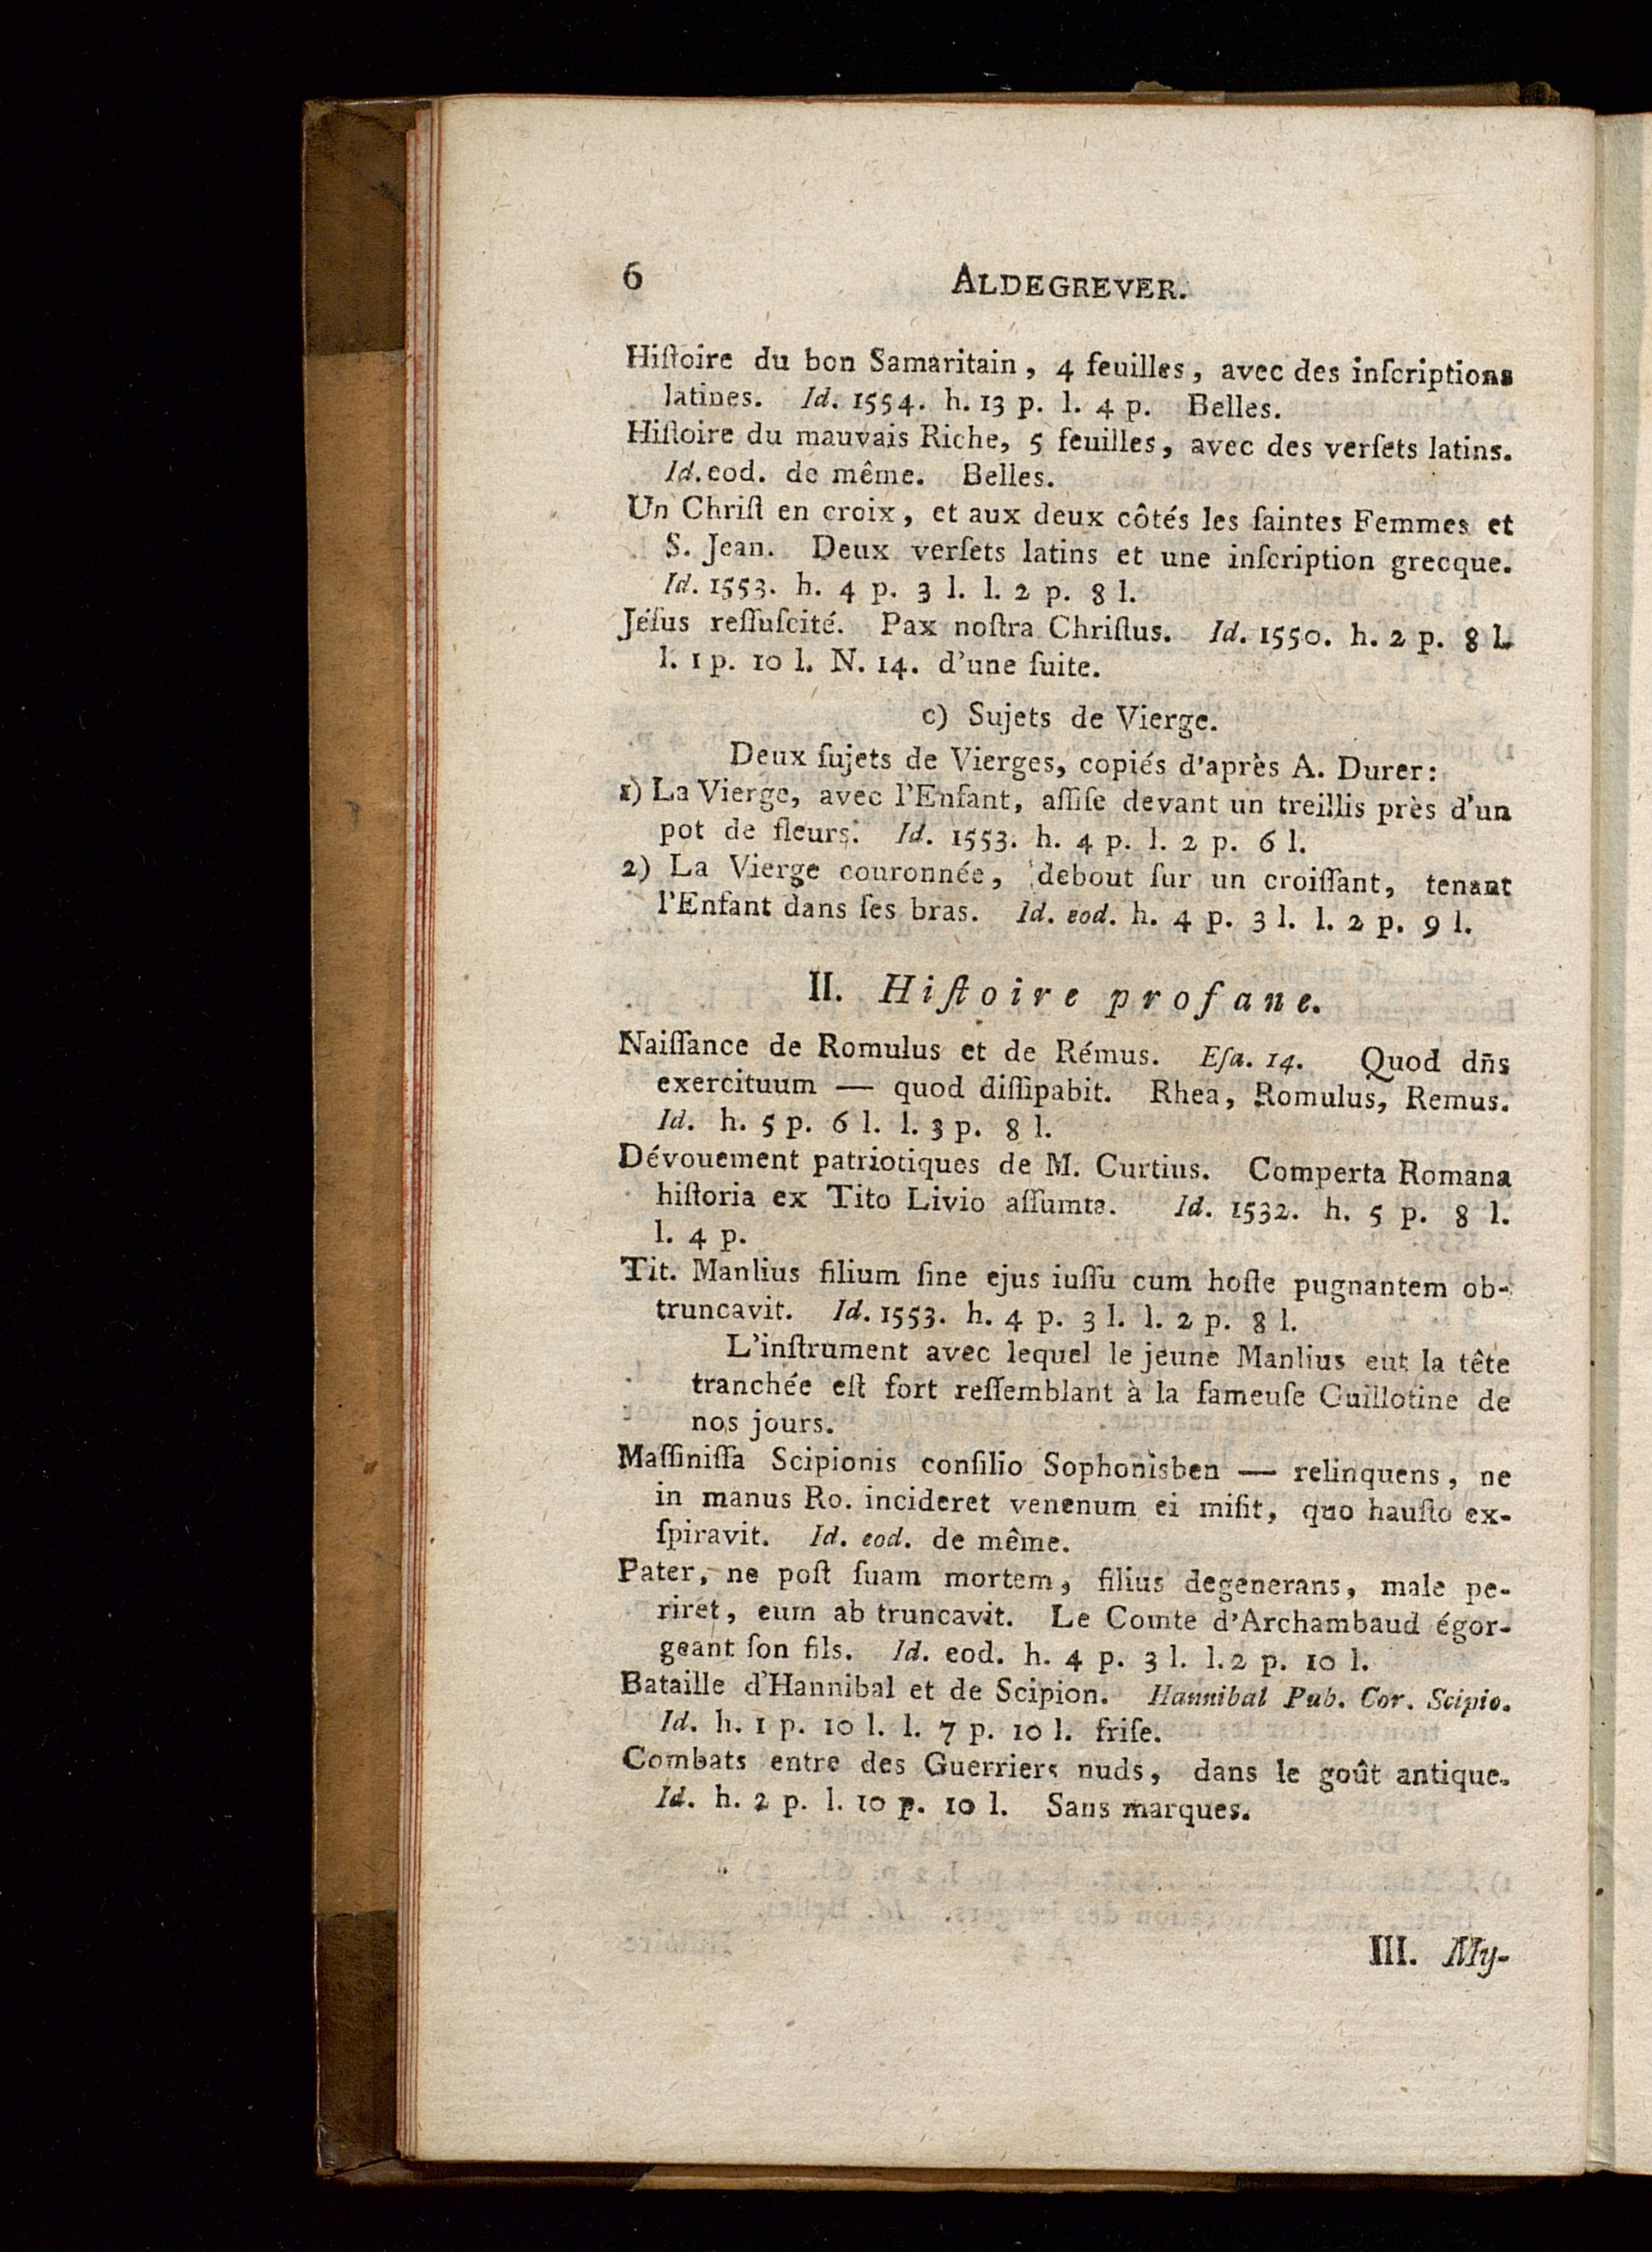 6 ALDEGREVER.
Hiſtoire du bon Samaritain, 4 feuilles, avec des inſcriptions
latines. Id. 1554. h. 13 p. l. 4 p. Belles.
Hiſtoire du mauvais Riche, 5 feuilles, avec des verſets latins.
Id. eod. de même. Belles.
Un Chriſt en croix, et aux deux côtés les ſaintes Femmes et
S. Jean. Deux verſets latins et une inſcription grecque.
Id. 1553. h. 4 p. 3 l. l. 2 p. 8 l.
Jéſus reſſuſcité. Pax noſtra Chriſtus. Id. 1550. h. 2 p. 8 l.
l. 1 p. 10 l. N. 14. d'une ſuite.
c) Sujets de Vierge.
Deux ſujets de Vierges, copiés d'après A. Durer:
1) La Vierge, avec l'Enfant, aſſiſe devant un treillis près d'un
pot de fleurs. Id. 1553. h. 4 p. l. 2 p. 6 l.
2) La Vierge couronnée, debout ſur un croiſſant, tenant
l'Enfant dans ſes bras. Id. eod. h. 4 p. 3 l. l. 2 p. 9 l.
II. Hiſtoire profane.
Naiſſance de Romulus et de Rémus. Eſa. 14. Quod dn̄s
exercituum — quod diſſipabit. Rhea, Romulus, Remus.
Id. h. 5 p. 6 l. l. 3 p. 8 l.
Dévouement patriotiques de M. Curtius. Comperta Romana
hiſtoria ex Tito Livio aſſumta. Id. 1532. h. 5 p. 8 l.
l. 4 p.
Tit. Manlius filium ſine ejus iuſſu cum hoſte pugnantem ob-
truncavit. Id. 1553. h. 4 p. 3 l. l. 2 p. 8 l.
L'inſtrument avec lequel le jeune Manlius eut la tête
tranchée eſt fort reſſemblant à la fameuſe Guillotine de
nos jours.
Maſſiniſſa Scipionis conſilio Sophonisben — relinquens, ne
in manus Ro. incideret venenum ei miſit, quo hauſto ex-
ſpiravit. Id. eod. de même.
Pater, ne poſt ſuam mortem, filius degenerans, male pe-
riret, eum ab truncavit. Le Comte d'Archambaud égor-
geant ſon fils. Id. eod. h. 4 p. 3 l. l. 2 p. 10 l.
Bataille d'Hannibal et de Scipion. Hannibal Pub. Cor. Scipio.
Id. h. 1 p. 10 l. l. 7 p. 10 l. friſe.
Combats entre des Guerriers nuds, dans le goût antique.
Id. h. 2 p. l. 10 p. 10 l. Sans marques.
III. My-